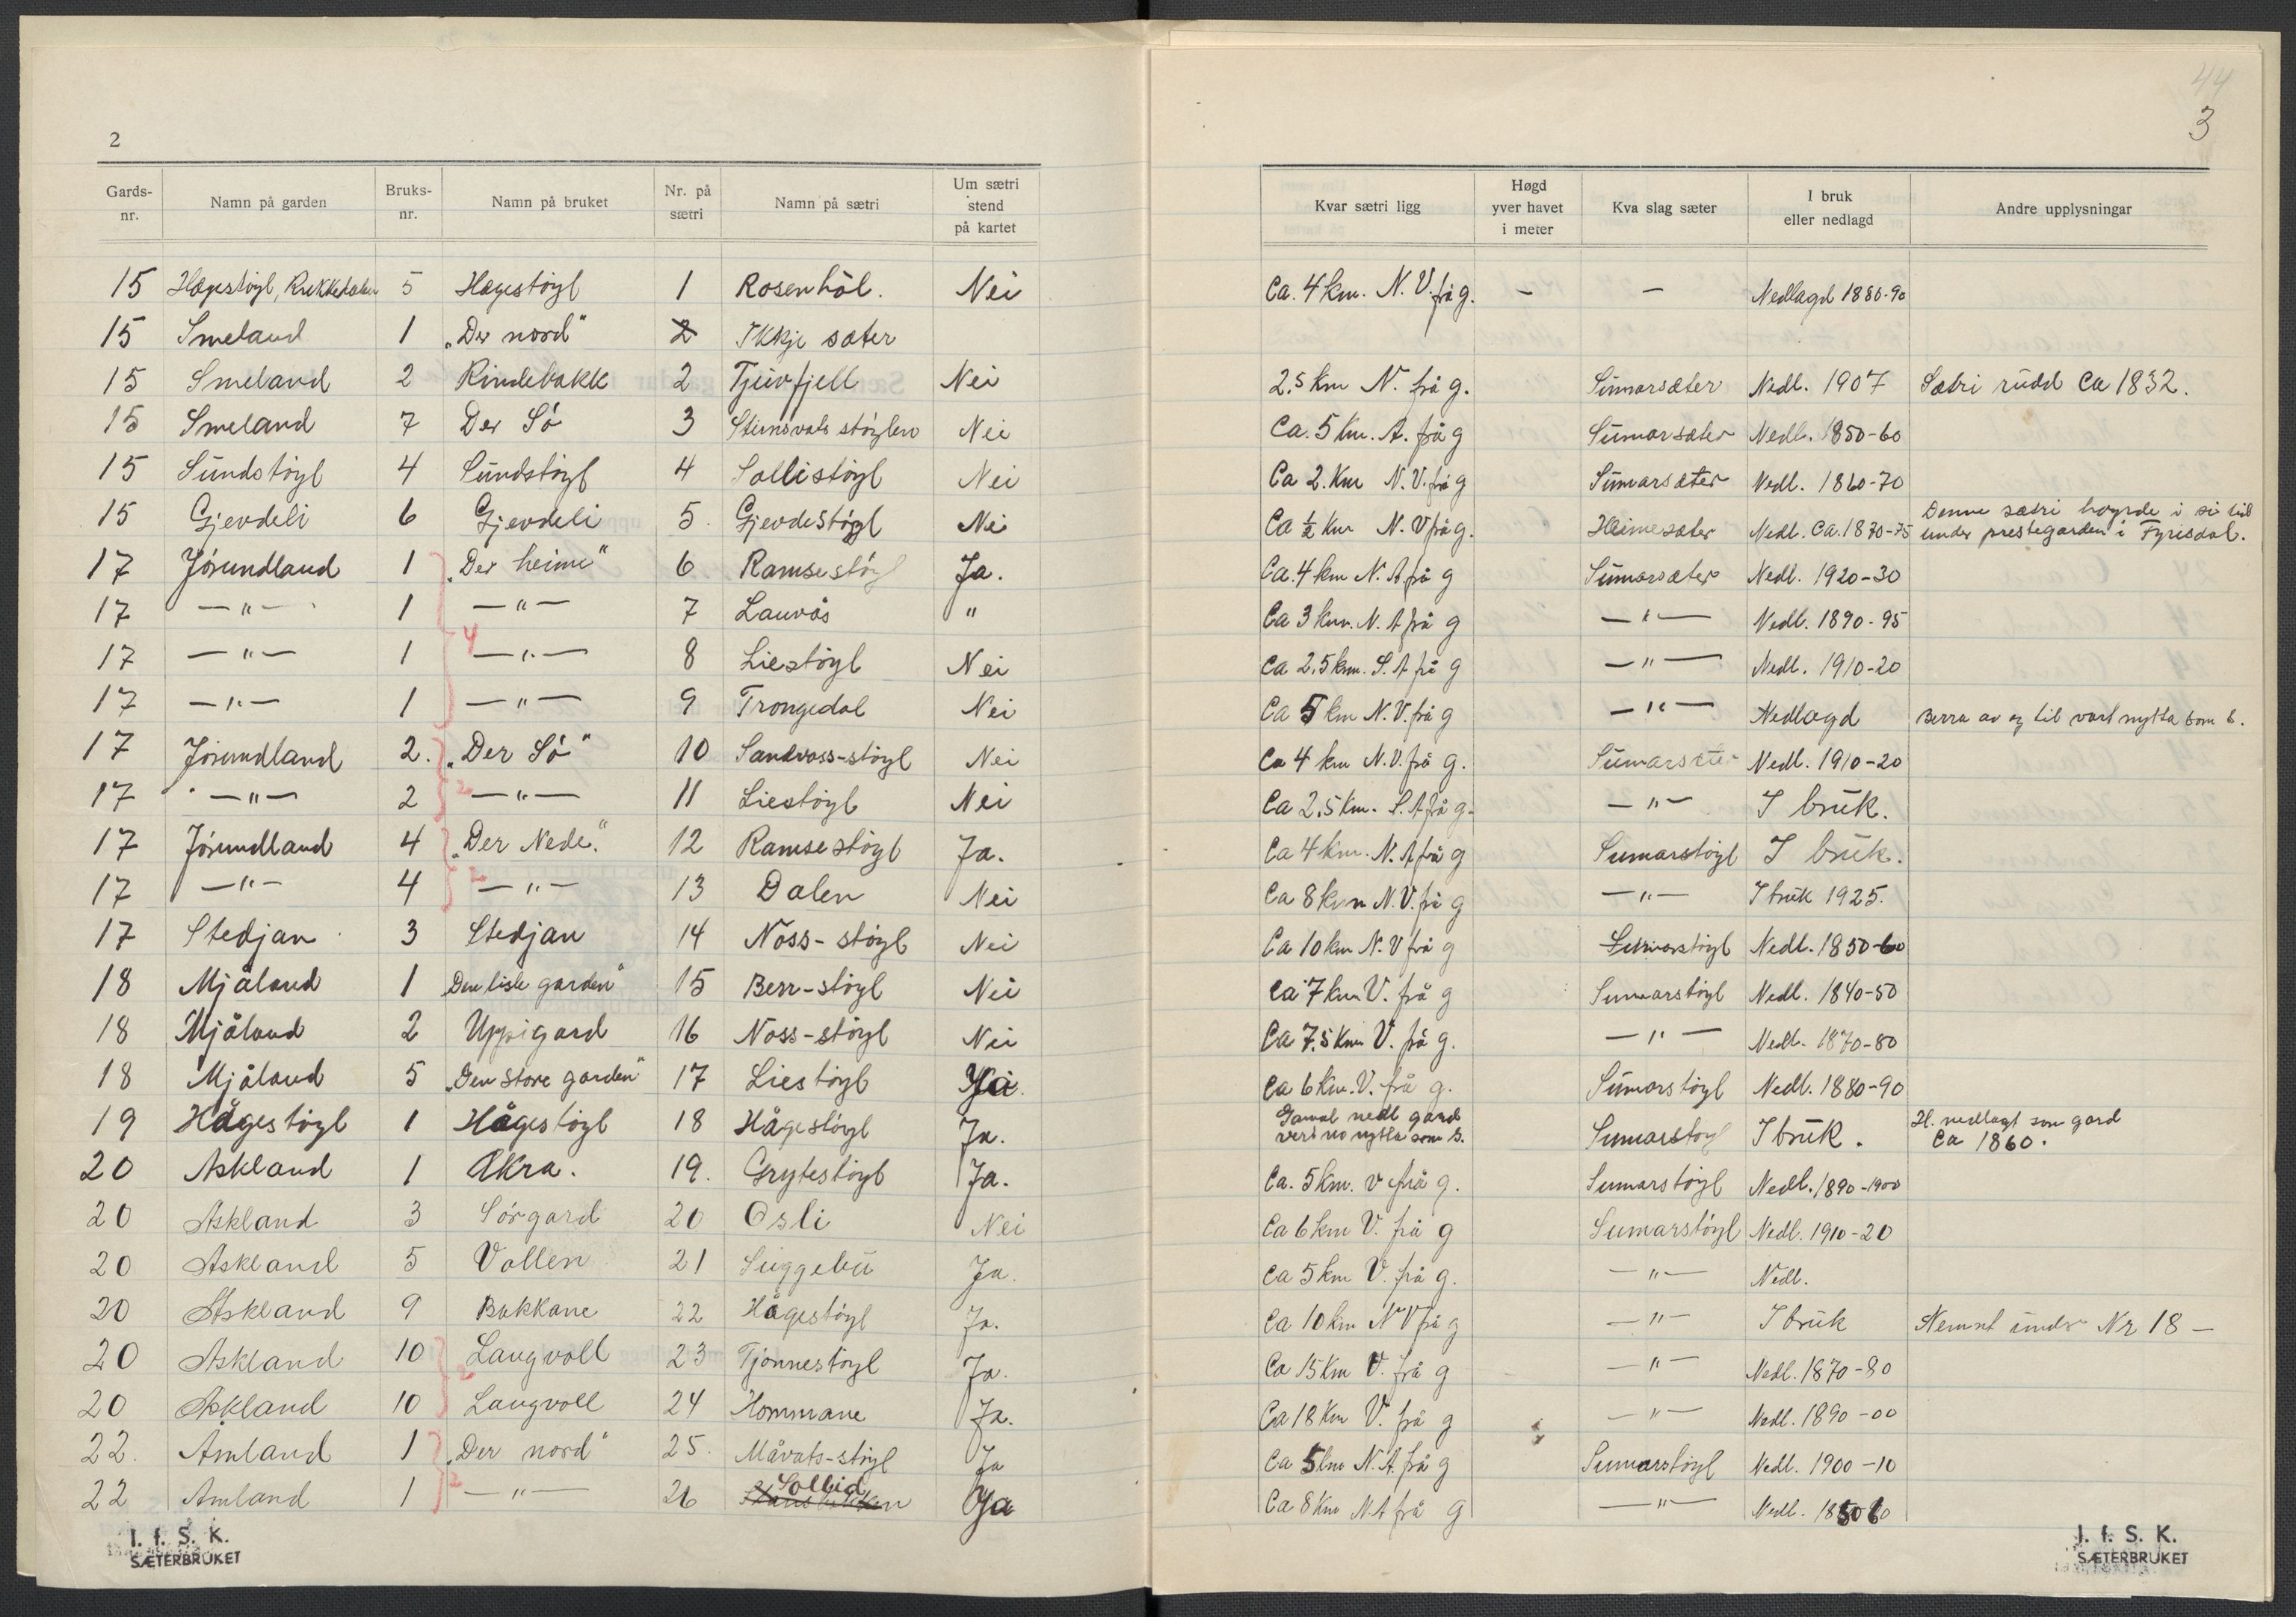 2
Gards-nr. Namn på garden Bruks-nr. Namn på bruket Nr. på sætri Namn på sætri Um sætri stend på kartet
15 Hægestøyl, 5 Hægestøyl 1 Rosenhòl. Nei
15 Smeland 1 „Der nord" 2 Ikkje sæter
15 Smeland 2 Rindebakk 2 Tjuvfjell Nei
15 Smeland 7 Der Sø 3 Nei
15 Sundstøyl 4 Sundstøyl 4 Sollistøyl Nei
15 Gjevdeli 6 Gjevdeli 5. Gjevdestøyl Nei
17 Jørundland 1 „Der heime" 6 Ramsestøyl Ja.
17 —"— 1 —"— 7 Lauvås "
17 —"— 1 4 —"— 8 Liestøyl Nei
17 —"— 1 —"— 9 Trongedal Nei
17 Jørundland 2. „Der Sø" 10 Sandvass-støyl Nei
17 —"— 2 2 —"— 11 Liestøyl Nei
17 Jørundland 4 „Der Nede." 12 Ramsestøyl Ja.
17 —"— 4 2 —"— 13 Dalen Nei
17 Stedjan 3 Stedjan 14 Noss-støyl Nei
18 Mjåland 1 Den lisle garden" 15 Berr-støyl Nei
18 Mjåland 2 Uppigard 16 Noss-støyl Nei
18 Mjåland 5 „Den store garden" 17 Liestøyl
19 Hågestøyl 1 Hågestøyl 18 Hågestøyl Ja.
20 Askland 1 Åkra. 19. Grytestøyl Ja.
20 Askland 3 Sørgard 20 Osli Nei
20 Askland 5 Vollen 21 Suggebu Ja.
20 Askland 9 Bakkane 22 Hågestøyl Ja.
20 Askland 10 Langvoll 23 Tjønnestøyl Ja.
20 Askland 10 2 Langvoll 24 Hommane Ja.
22. Åmland 1 „Der nord" 25. Måvats-støyl Ja
22 Åmland 1 2 —"— 26 Sollid Ja
I. f. S. K.
SÆTERBRUKET
44
3
Kvar sætri ligg Høgd yver havet i meter Kva slag sæter I bruk eller nedlagd Andre upplysningar
Ca. 4 km. N.V. frå g. — — Nedlagd 1880-90
2.5 km N. frå g. Sumarsæter Nedl. 1907 Sætri rudd Ca 1832.
Ca. 5 km. A. frå g Sumarsæter Nedl. 1850-60
Ca 2. km N.V. frå g Sumarsæter Nedl. 1860-70
Ca ½ km N.V frå g. Heimesæter Nedl. Ca. 1870-75 Denne sætri høyrde i si tid
under prestegarden i Fyrisdal.
Ca. 4 km N.A frå g Sumarsæter Nedl. 1920-30
Ca 3 km. N.A frå g —"— Nedl. 1890-95
Ca 2.5 km. S.A frå g —"— Nedl. 1910-20
Ca 5 km N.V. frå g —"— Nedlagd Berra av og til vart nytta som s.
Ca 4 km N.V. frå g. Sumarsæter Nedl. 1910-20
Ca 2.5 km. S.A frå g. —"— I bruk.
Ca 4 km. N.A frå g Sumarstøyl I bruk.
Ca 8 km N.V. frå g —"— I bruk 1925.
Ca 10 km N.V frå g Sumarstøyl Nedl. 1850-60
Ca 7 km V. frå g Sumarstøyl Nedl. 1840-50
Ca 7.5 km V. frå g. —"— Nedl. 1870-80
Ca 6 km. V. frå g. Sumarstøyl Nedl. 1880-90
Gamal nedl gard
vert no nytta som s. Sumarstøyl I bruk. H. nedlagt som gard
Ca 1860.
Ca. 5 km. V frå g. Sumarstøyl Nedl. 1890-1900
Ca 6 km V. frå g Sumarstøyl Nedl. 1910-20
Ca 5 km V. frå g. —"— Nedl.
Ca 10 km N V frå g —"— I bruk Nemnt under Nr 18 —
Ca 15 km V. frå g —"— Nedl. 1870-80
Ca 18 km V. frå g —"— Nedl. 1890-00
Ca 5 km N.A. frå g Sumarstøyl Nedl. 1900-10
Ca 8 km N.A frå g —"— Nedl. 1850 60
I. f. S. K.
SÆTERBRUKET